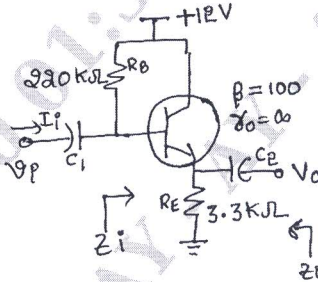 +12V
220KΩ RB
β=100
γo=∞
Ii
C1
C2
Vo
RE
3.3KΩ
Zi